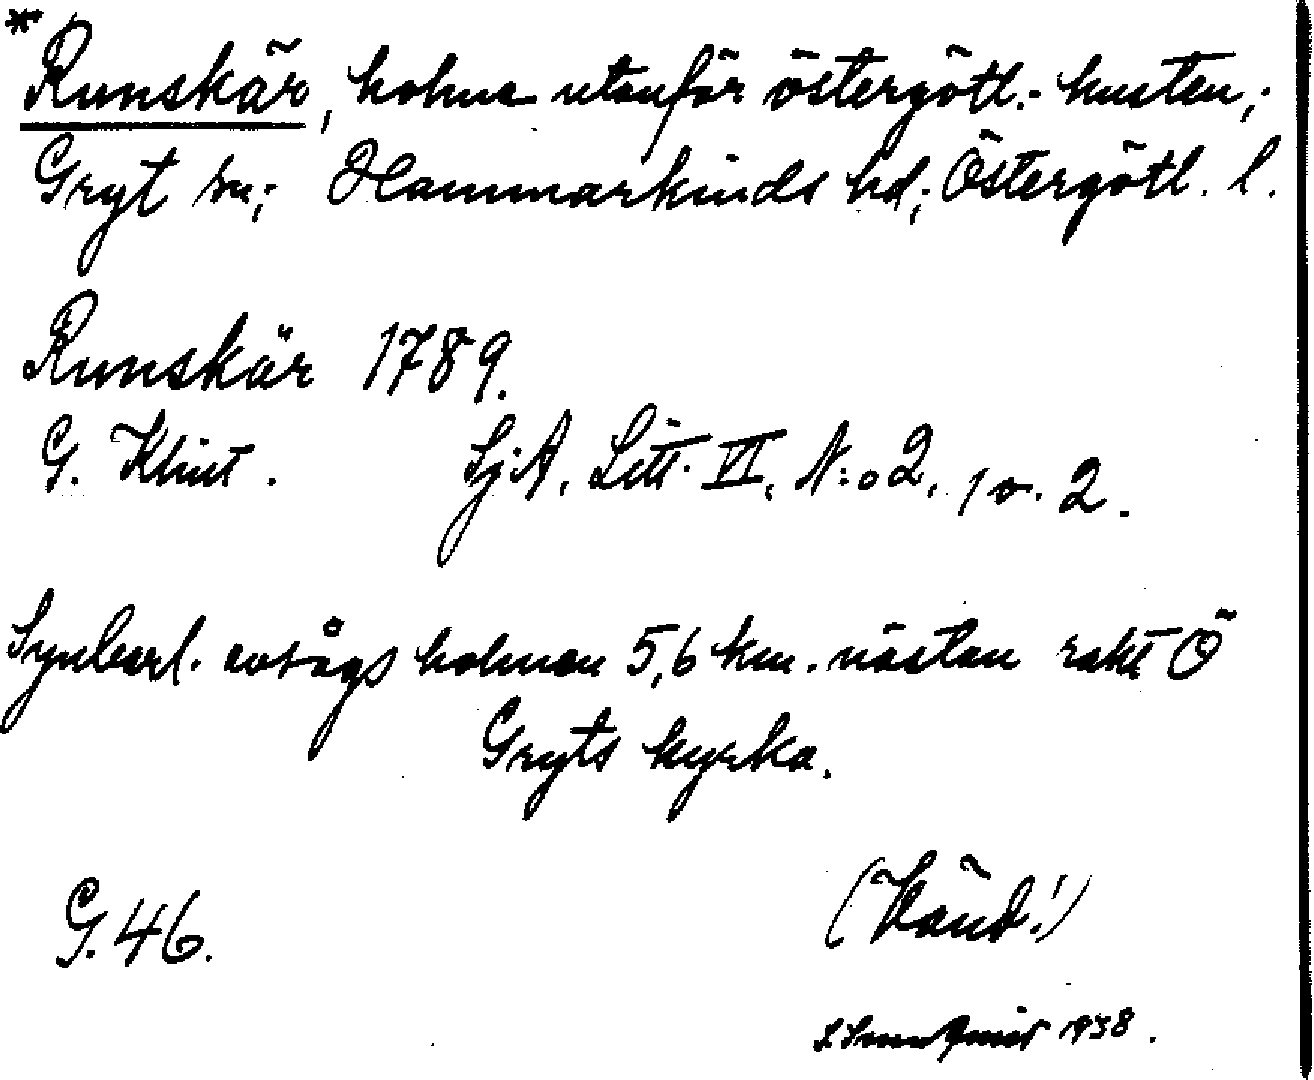 *Runskär, holme utanför östergötl.-kusten;
Gryt sn; Hammarkinds hd; Östergötl. l.
Runskär 1789.
G. Klint. Sj:A, Litt. VI, N:o 2, 1 o. 2.
Synbarl. avsågs holmen 5,6 km. nästan rakt Ö
Gryts kyrka.
G. 46. (Vänd!)
1938.